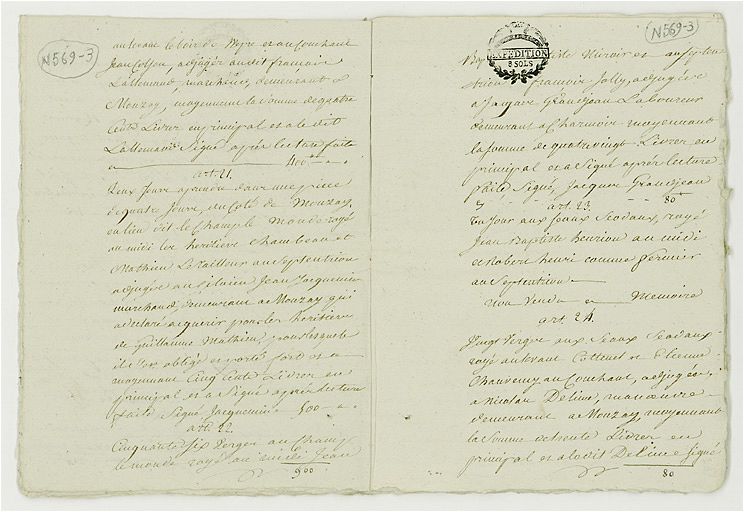 N569-3
au levant le bois de Mire et au couchant
Jean Colson, adjugée audit françois
Lallemand, marchand, demeurant a
Mouzay, moyennant la somme de quatre
Cents Livres en principal et a le dit
Lallemand Signé après lecture faite
400
art. 21.
Deux Jours a prendre dans une piece
de quatre Jours, au coté de Mouzay,
au lieu dit le Champ le Monde royé
au midi les heritiers Chambeau et
Mathieu Le tailleur au Septentrion
adjugée au Jean Jacquemin
marchand, demeurant a Mouzay qui
a declaré acquerir pour les heritiers
de Guillaume Mathieu, pour lesquels
il s'est obligé et porté fort et a
moyennant Cinq Cents Livres en
principal et a Signé après lecture
faite Signé Jacquemin 500
art. 22.
Cinquante Six Verges au Champ
le monde royé au midi Jean
900
N569-3
EXPEDITION
8 SOLS
Baptiste Miroir et au Septen
trion françois Jolly, adjugée
a Jacques Grandjean Laboureur
demeurant a Charmoir moyennant
la somme de quatre vingt Livres en
principal et a Signé après lecture
faite Signé, Jacques Grandjean
80
art. 23.
Un Jour aux Seaux Seadaux, royé
Jean Baptiste henriou au midi
et Robert henri comme fermier
au Septentrion
Non Vendu Memoire
art. 24.
Vingt Verges aux Seaux Seadaux
royé au levant Cottenet et Etienne
Chauvency au Couchant, adjugée
a Nicolas Delime, manœuvre
demeurant a Mouzay, moyennant
la Somme de Livres en
principal et a le dit Delime Signé
80